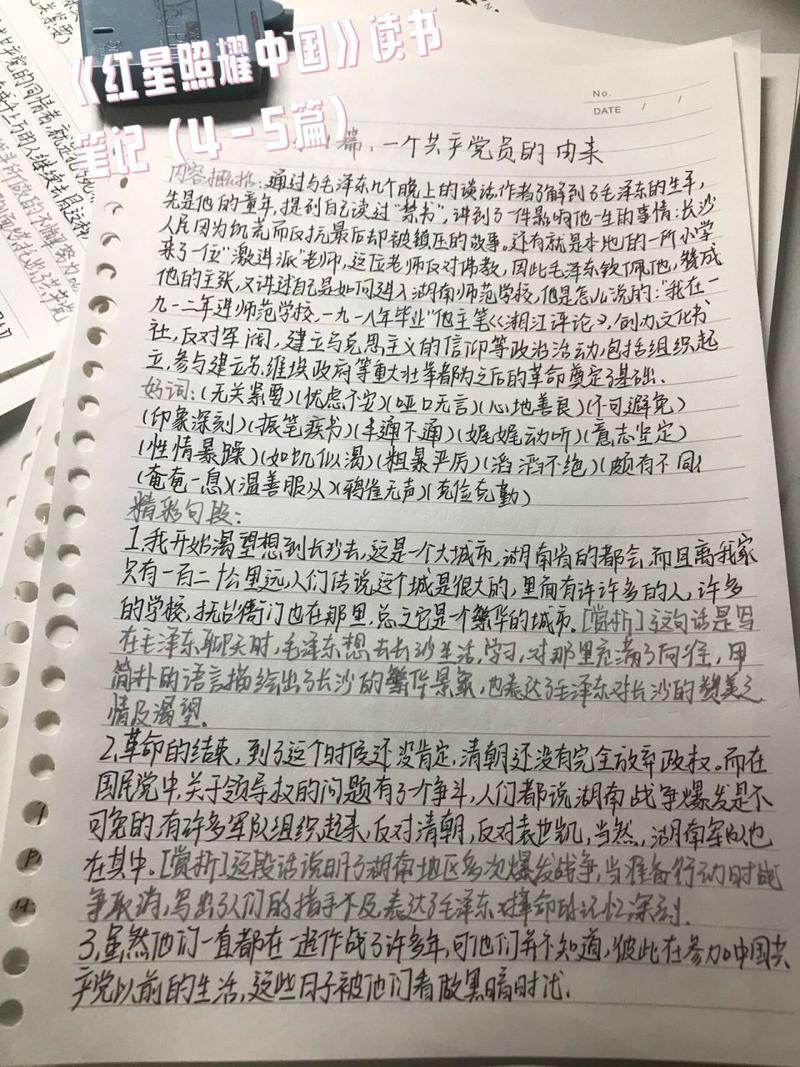 《红星照耀中国》读书
笔记（4-5篇）
No.
DATE / /
篇、一个共产党员的由来
内容概括：通过与毛泽东几个晚上的谈话,作者了解到了毛泽东的生平,
先是他的童年,提到自己读过“禁书”,讲到了一件影响他一生的事情:长沙
人民因为饥荒而反抗最后却被镇压的故事。还有就是本地的一所小学
来了一位“激进派”老师,这位老师反对佛教,因此毛泽东钦佩他,赞成
他的主张,又讲过自己是如何进入湖南师范学校,他是怎么说的:“我在一
九一二年进师范学校,一九一八年毕业”他主笔《湘江评论》,创办文化书
社,反对军阀,建立马克思主义的信仰等政治活动,包括组织起
立,参与建立苏维埃政府等重大壮举都为之后的革命奠定了基础.
好词:(无关紧要)(忧虑不安)(哑口无言)(心地善良)(不可避免)
(印象深刻)(振笔疾书)(半通不通)(娓娓动听)(意志坚定)
(性情暴躁)(如饥似渴)(粗暴严厉)(滔滔不绝)(颇有不同)
(奄奄一息)(温善服从)(鸦雀无声)(克俭克勤)
精彩句段:
1.我开始渴望想到长沙去,这是一个大城市,湖南省的都会,而且离我家
只有一百二十公里远,人们传说这个城是很大的,里面有许许多多的人,许多
的学校,抚台衙门也在那里,总之它是个繁华的城市.[赏析]这句话是写
在毛泽东聊天时,毛泽东想去长沙生活,学习,对那里充满了向往,用
简朴的语言描绘出了长沙的繁华景象,也表达了毛泽东对长沙的赞美之
情及渴望.
2.革命的结束,到了这个时候还没肯定,清朝还没有完全放弃政权。而在
国民党中,关于领导权的问题有了个争斗,人们都说湖南战争爆发是不
可免的.有许多军队组织起来,反对清朝,反对袁世凯,当然,湖南军队也
在其中.[赏析]这段话说明了湖南地区多次爆发战争,当准备行动时战
争取消,写出了人们的措手不及,表达了毛泽东对革命的记忆深刻.
3.虽然他们一直都在一起作战了许多年,可他们并不知道,彼此在参加中国共
产党以前的生活,这些日子被他们看做黑暗时代.